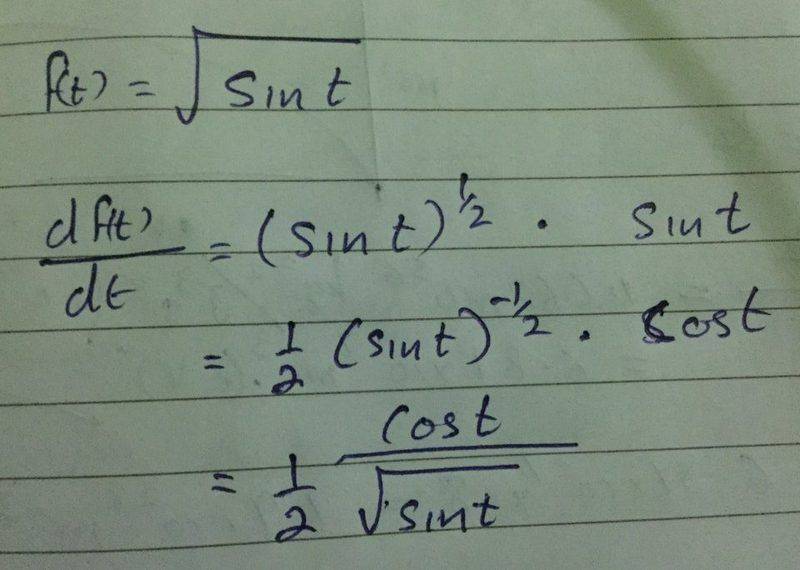 f(t) = √(sin t)
df(t)/dt = (sin t)^1/2 · sin t
= 1/2 (sin t)^-1/2 · cos t
= 1/2 cos t/√(sin t)